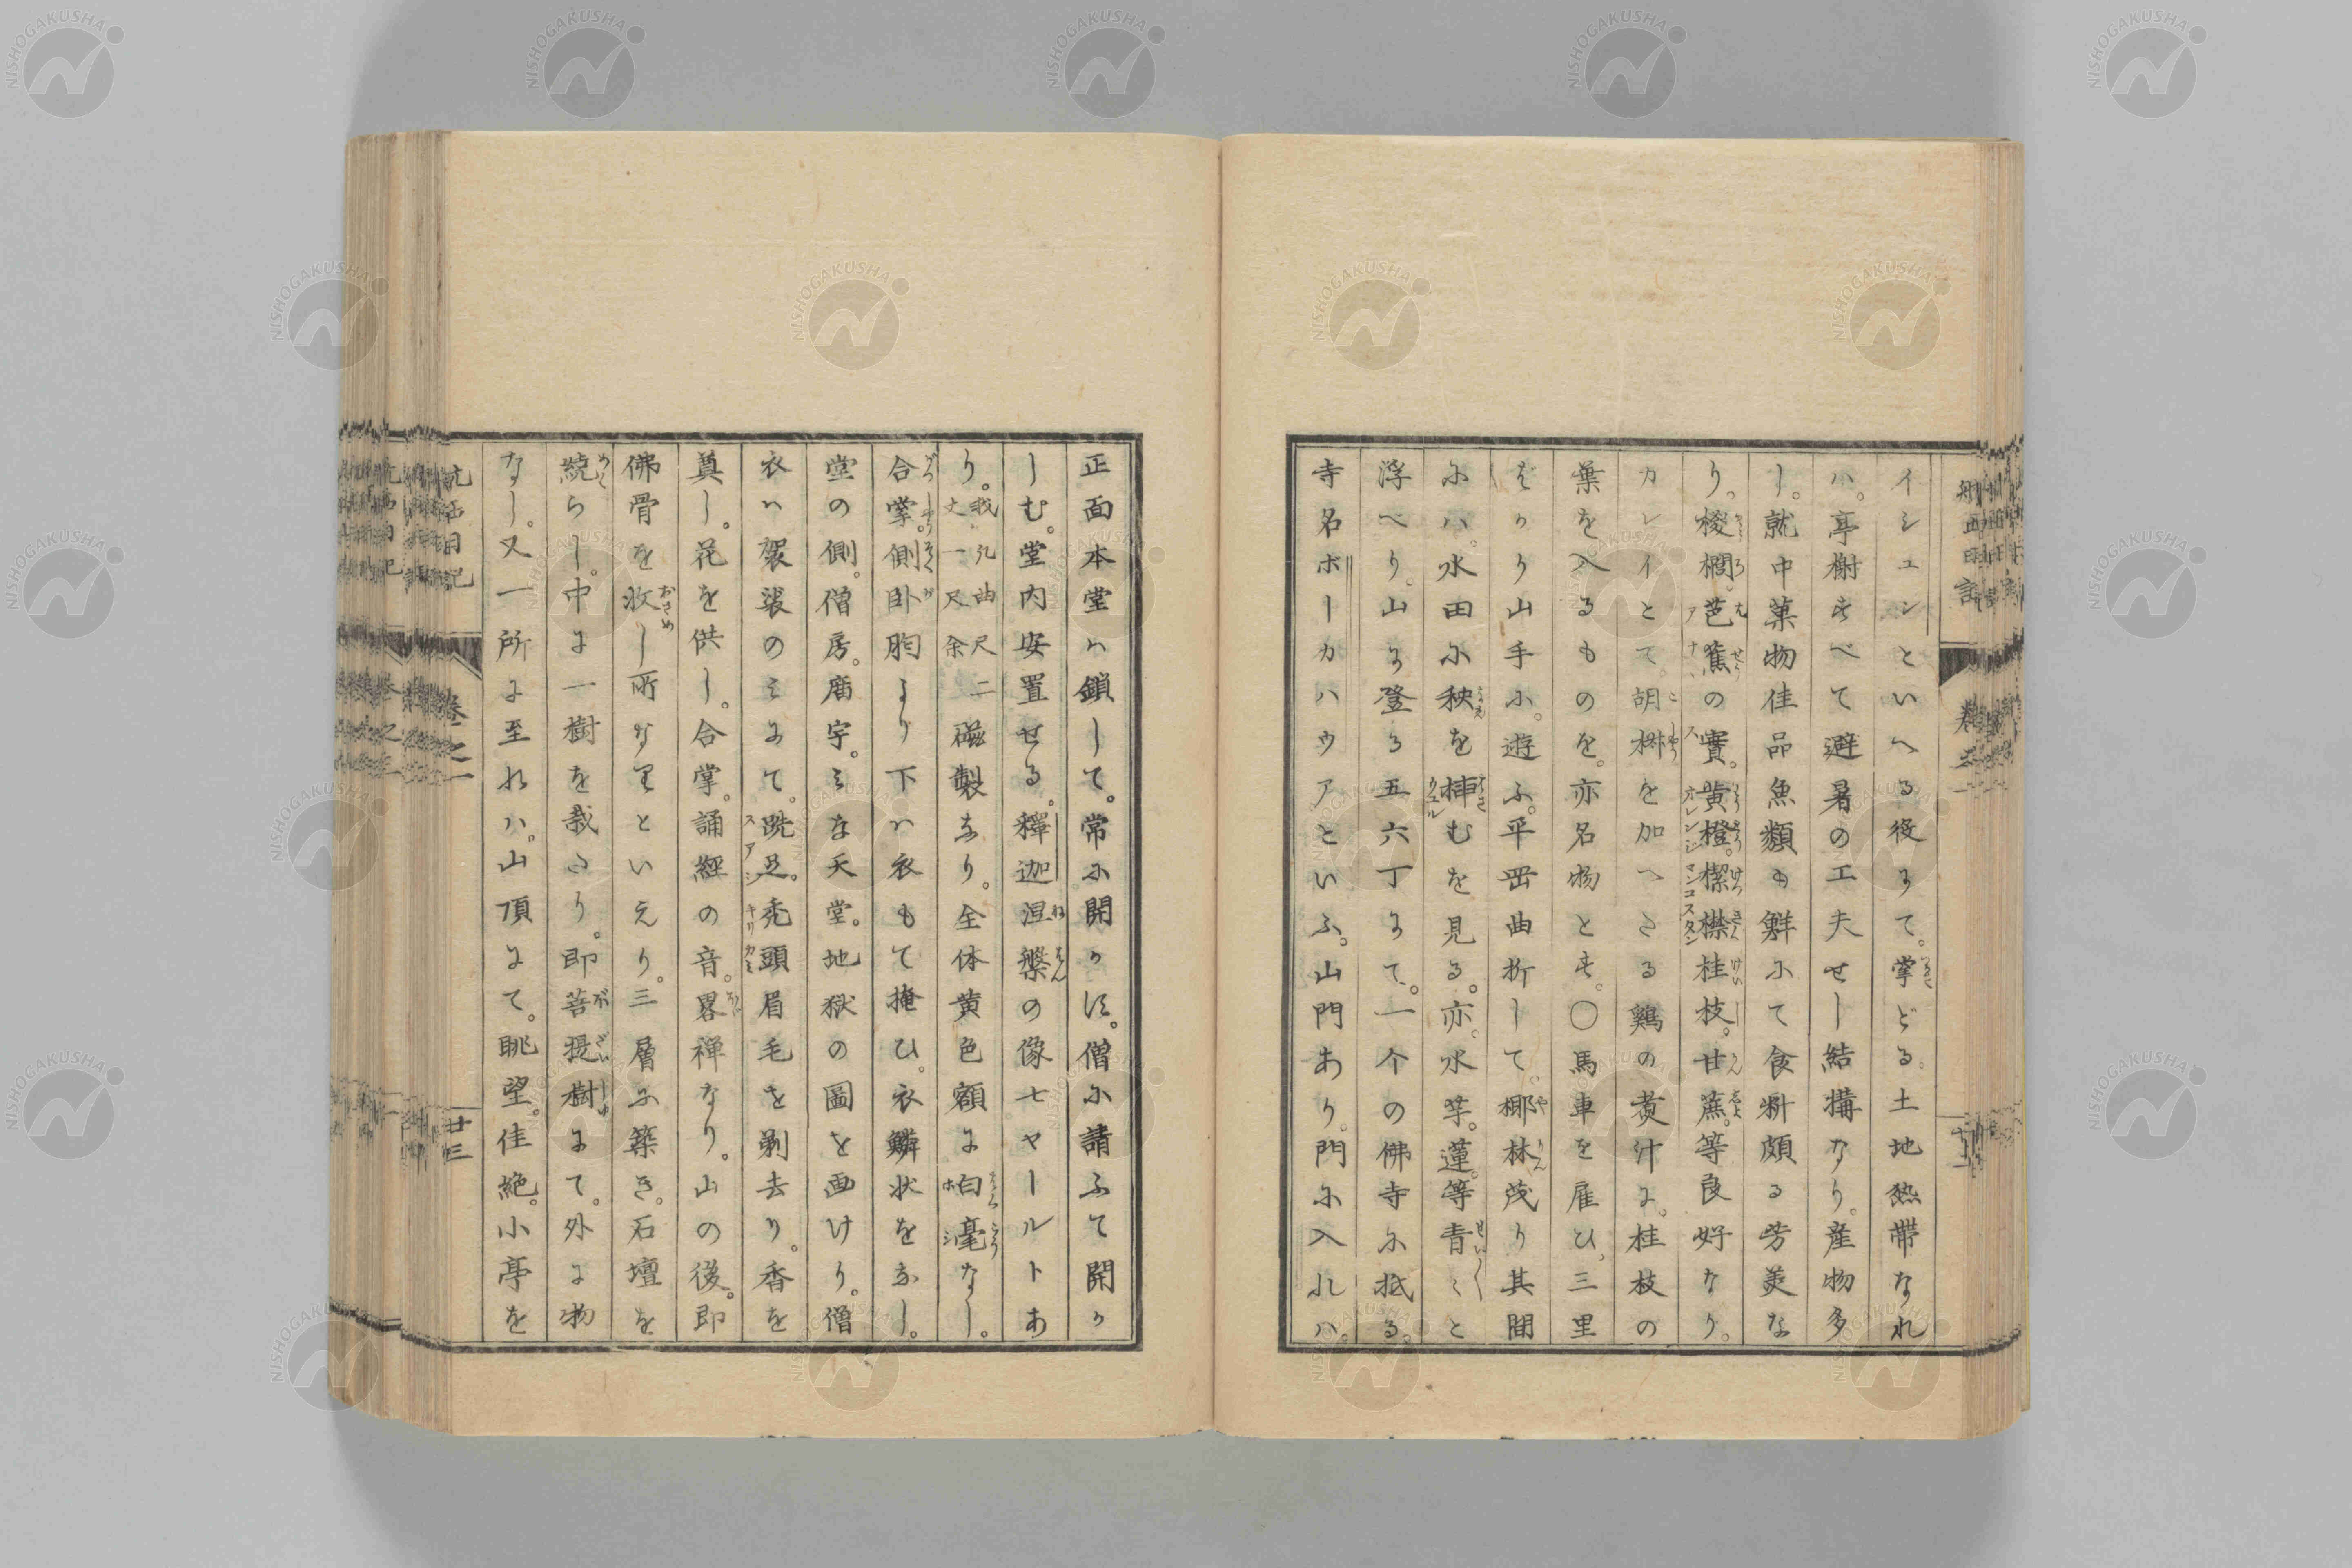 イシュンといへる役にて。掌どる。土地熱帯なれ
ハ。亭榭すべて避暑の工夫せし結搆なり。産物多
し。就中菓物佳品魚類も鮮にて食料頗る芳美な
り。椶櫚。芭蕉の實。黄橙。橖襟桂枝。甘蔗。等良好なり。
カレイとて。胡椒を加へたる鶏の煮汁に。桂枝の
葉を入るものを。亦名物とす。〇馬車を雇ひ、三里
ばかり山手に。遊ふ。平岡曲折して。椰林茂り其間
にハ。水田に秧を挿むを見る。亦。水芋。蓮。等青〻と
浮べり。山に登る五六丁にて。一个の佛寺に抵る。
寺名ボーカハウアといふ。山門あり。門に入れハ。
正面本堂ハ鎖して。常に開かす。僧に請ふて開か
しむ。堂内安置せる。釋迦涅槃の像七ヤールトあ
り。我凡曲尺二丈一尺余磁製なり。全体黄色額に白毫なし。
合掌。側臥胸より下ハ衣もて掩ひ。衣鱗状をなし。
堂の側。僧房。廚宇。みな天堂。地獄の圖を画けり。僧
衣ハ袈裟のみにて。跣足。禿頭眉毛を剃去り。香を
奠し。花を供し。合掌。誦經の音。畧禅なり。山の後。即
佛骨を收し所なりといえり。三層に築き。石壇を
繞らし。中に一樹を栽たり。即菩提樹にて。外に物
なし。又一所に至れハ。山頂にて。眺望。佳絶。小亭を
航西日記
卷之一
廿三